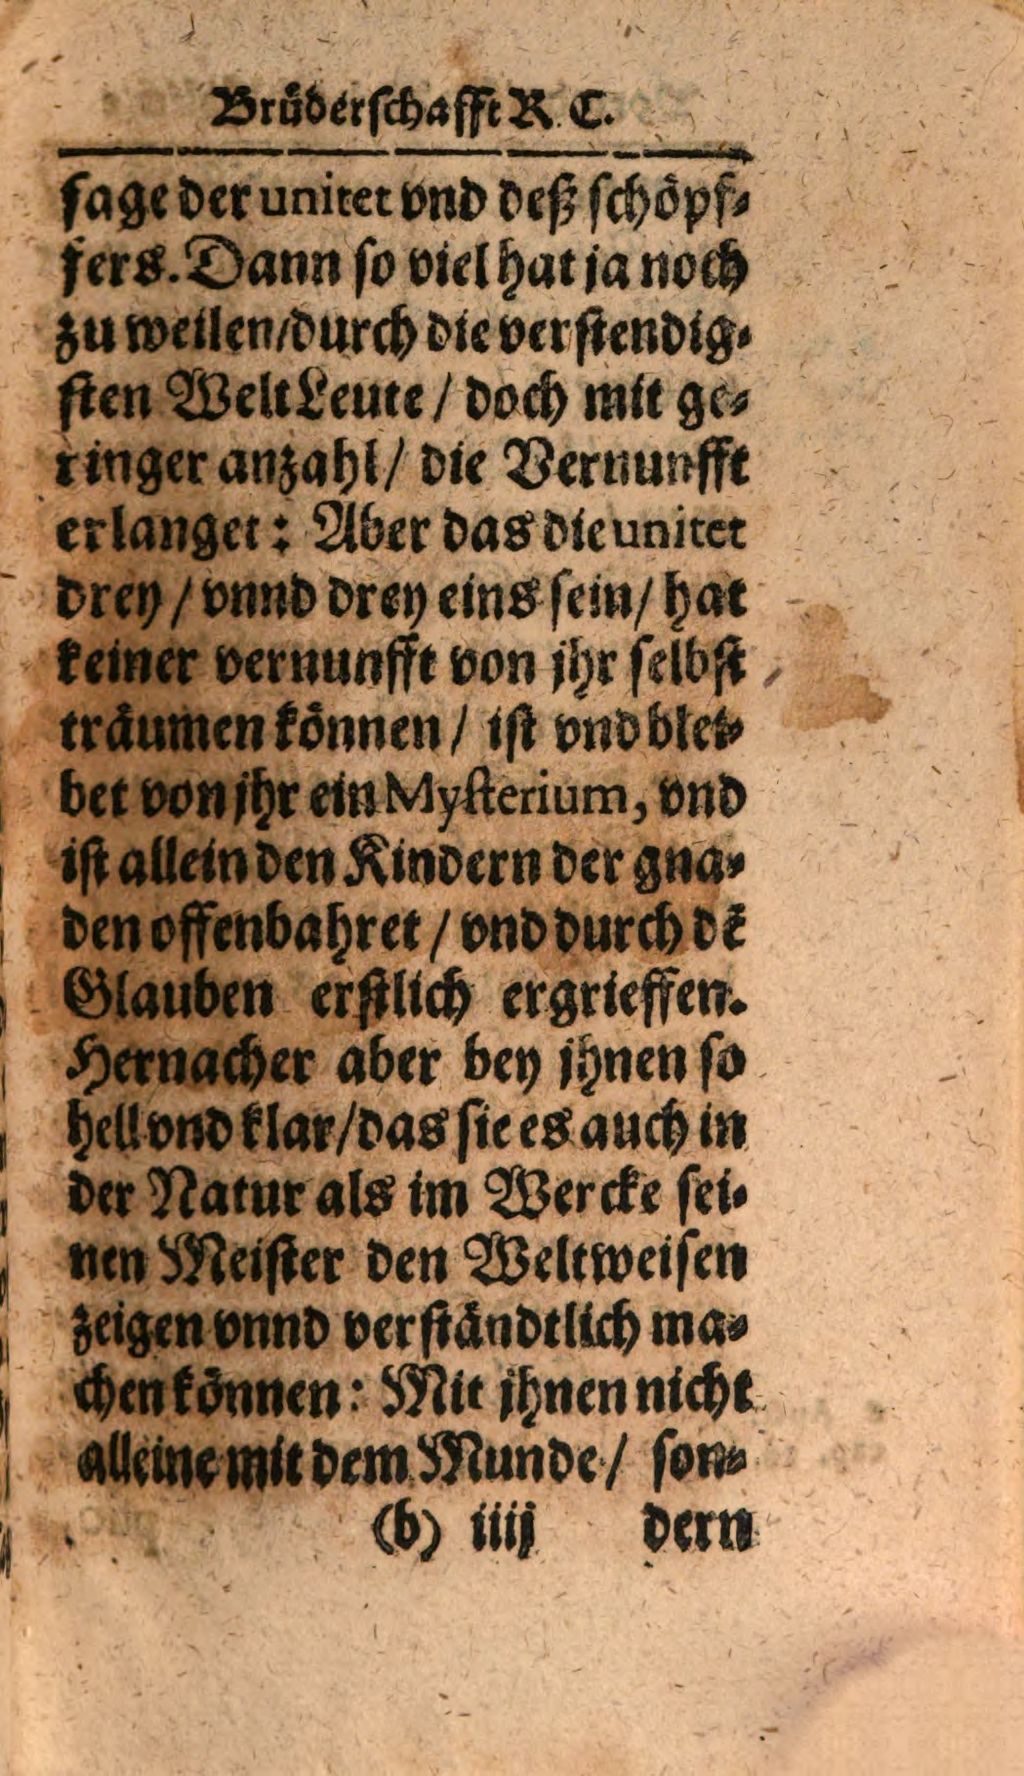 Brüderschafft R. C.
sage der unitet vnd deß schöpf⸗
fers. Dann so viel hat ja noch
zu weilen/durch die verstendig⸗
sten Welt Leute / doch mit ge⸗
ringer anzahl / die Vernunfft
erlanget: Aber das die unitet
drey / vnnd drey eins sein / hat
keiner vernunfft von jhr selbst
träumen können / ist vnd blei⸗
bet von jhr ein Mysterium, vnd
ist allein den Kindern der gna⸗
den offenbahret / vnd durch dẽ
Glauben erstlich ergrieffen.
Hernacher aber bey jhnen so
hell vnd klar/das sie es auch in
der Natur als im Wercke sei⸗
nen Meister den Weltweisen
zeigen vnnd verständtlich ma⸗
chen können: Mit jhnen nicht
alleine mit dem Munde / son⸗
(b) iiij dern